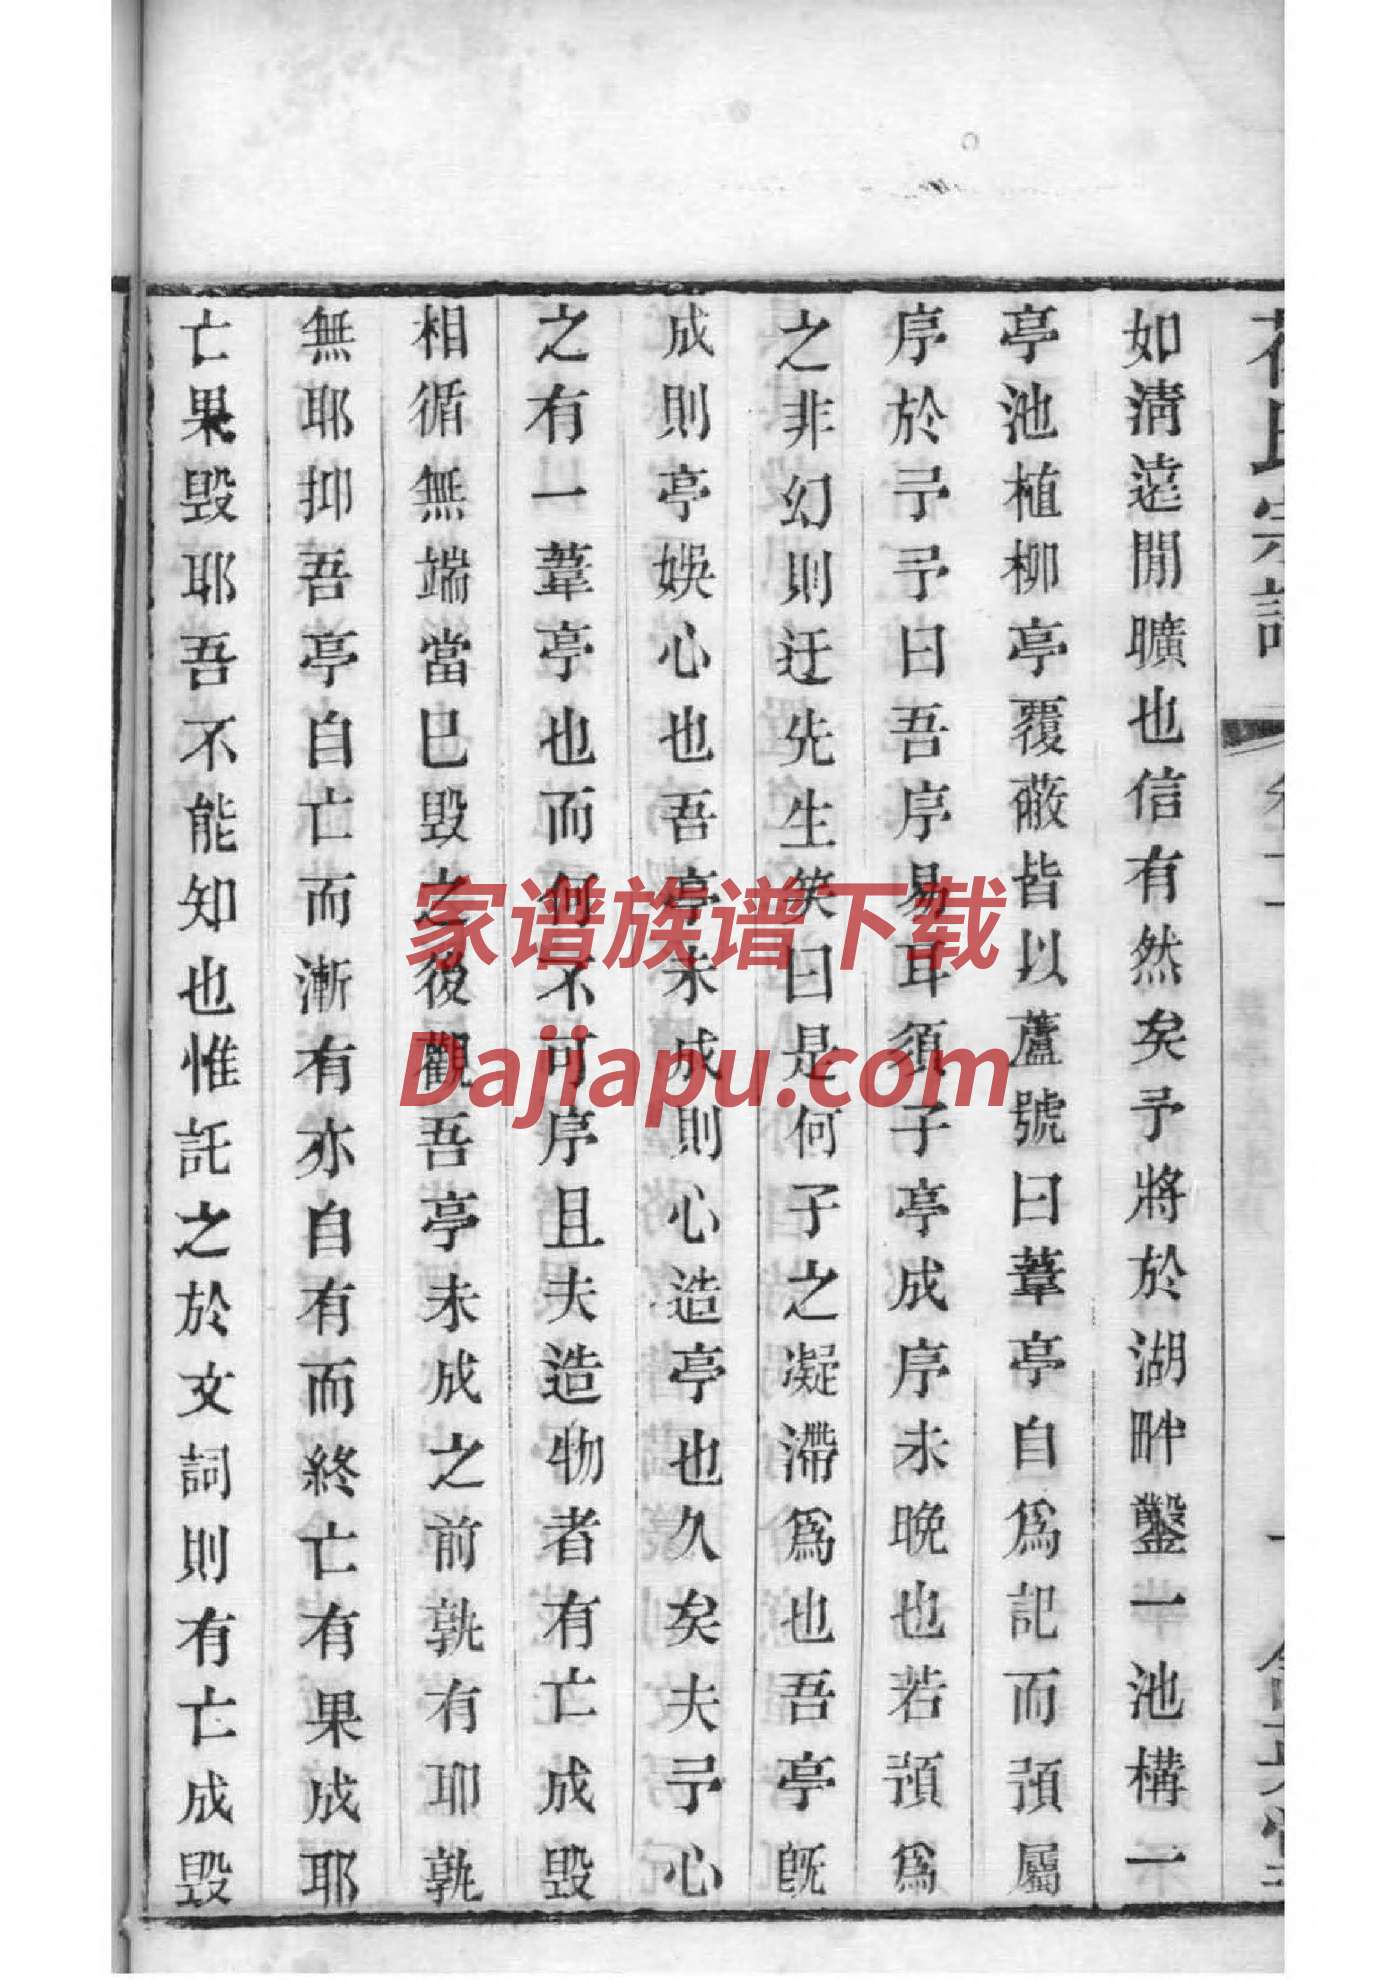 如淸遠閒曠也信有然矣予將於湖畔鑿一池構一
亭池植柳亭覆蔽皆以蘆號曰葦亭自爲記而預屬
序於予予曰吾序易耳須子亭成序未晚也若預爲
之非幻則迂先生笑曰是何子之凝滯爲也吾亭旣
成則亭娛心也吾亭未成則心造亭也久矣夫予心
之有一葦亭也而何不可序且夫造物者有亡成毁
相循無端當巳毁之後觀吾亭未成之前孰有耶孰
無耶抑吾亭自亡而漸有亦自有而終亡有果成耶
亡果毁耶吾不能知也惟託之於文詞則有亡成毁
家谱族谱下载
Dajiapu.com